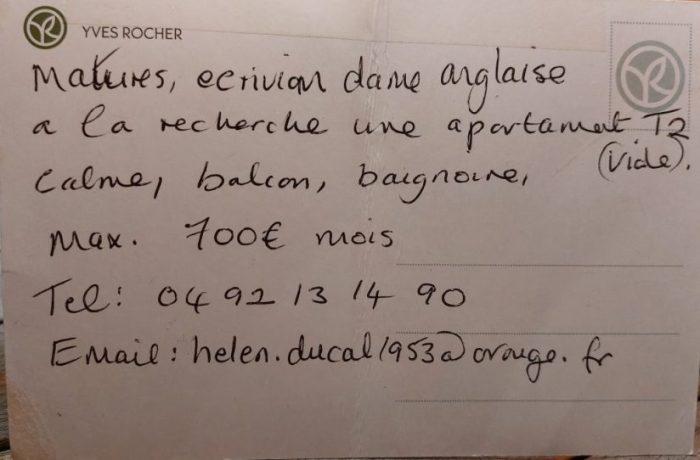 YVES ROCHER
Matures, ecrivian dame anglaise
a la recherche une apartamat T2
(vide).
Calme, balcon, baignoire,
Max. 700€ mois
Tel: 04 92 13 14 90
Email: helen.ducal1953@orange.fr